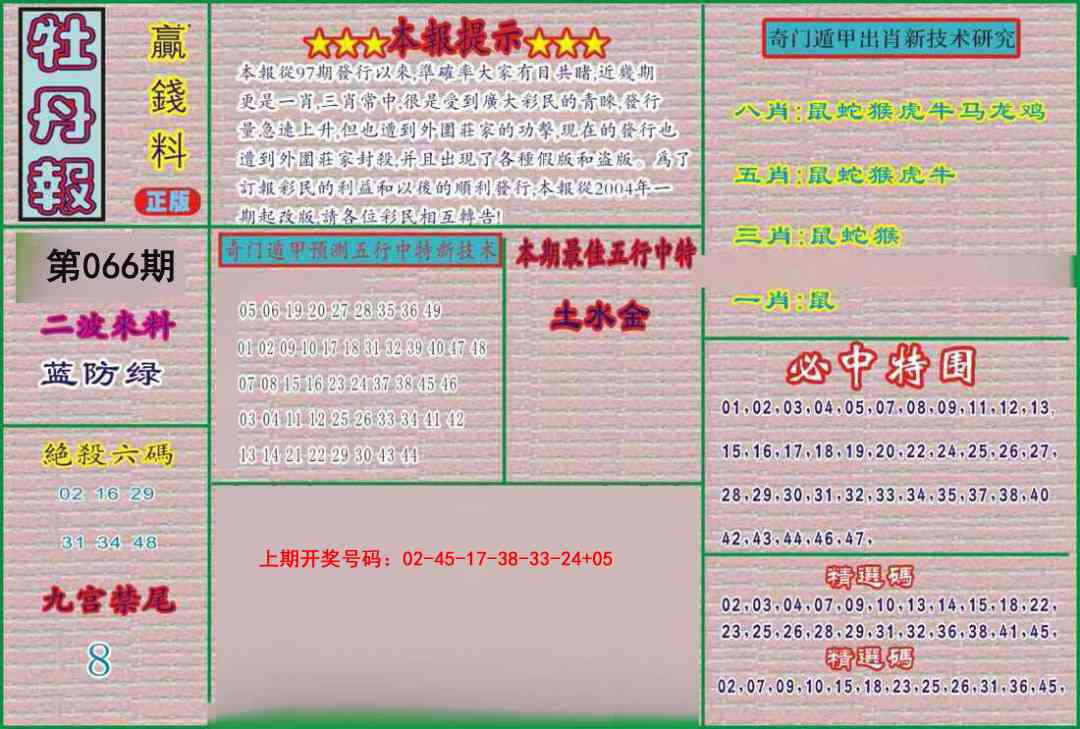 牡丹報
贏錢料
正版
第066期
二波來料
蓝防绿
絕殺六碼
02 16 29
31 34 48
九宫禁尾
8
★★★本報提示★★★
本報從97期發行以來,準確率大家有目共睹,近幾期
更是一肖,三肖常中,很是受到廣大彩民的青睞,發行
量急速上升,但也遭到外圍莊家的功擊,現在的發行也
遭到外圍莊家封殺,并且出現了各種假版和盗版。爲了
訂報彩民的利益和以後的順利發行,本報從2004年一
期起改版,請各位彩民相互轉告!
奇门遁甲预测五行中特新技术
05 06 19 20 27 28 35 36 49
01 02 09 10 17 18 31 32 39 40 47 48
07 08 15 16 23 24 37 38 45 46
03 04 11 12 25 26 33 34 41 42
13 14 21 22 29 30 43 44
本期最佳五行中特
土水金
上期开奖号码：02-45-17-38-33-24+05
奇门遁甲出肖新技术研究
八肖:鼠蛇猴虎牛马龙鸡
五肖:鼠蛇猴虎牛
三肖:鼠蛇猴
一肖:鼠
必中特围
01,02,03,04,05,07,08,09,11,12,13,
15,16,17,18,19,20,22,24,25,26,27,
28,29,30,31,32,33,34,35,37,38,40
42,43,44,46,47,
精選碼
02,03,04,07,09,10,13,14,15,18,22,
23,25,26,28,29,31,32,36,38,41,45,
精選碼
02,07,09,10,15,18,23,25,26,31,36,45,